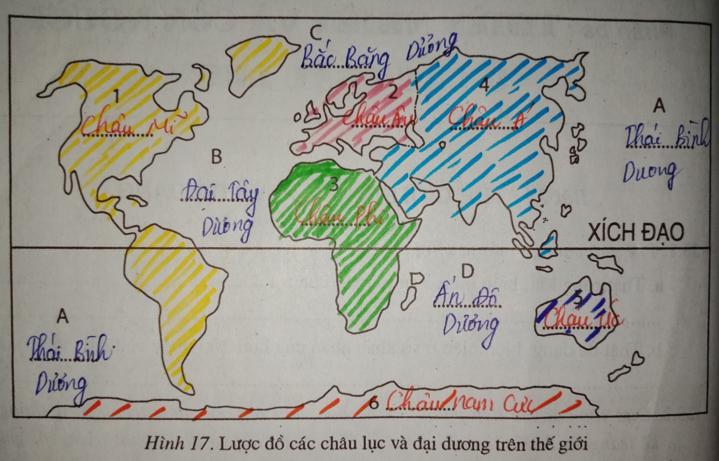 C
Bắc Băng Dương
1
Châu Mĩ
2
Châu Âu
4
Châu Á
A
Thái Bình
Dương
B
Đại Tây
Dương
3
Châu Phi
XÍCH ĐẠO
D
Ấn Độ
Dương
5
Châu Úc
A
Thái Bình
Dương
6 Châu nam Cực
Hình 17. Lược đồ các châu lục và đại dương trên thế giới